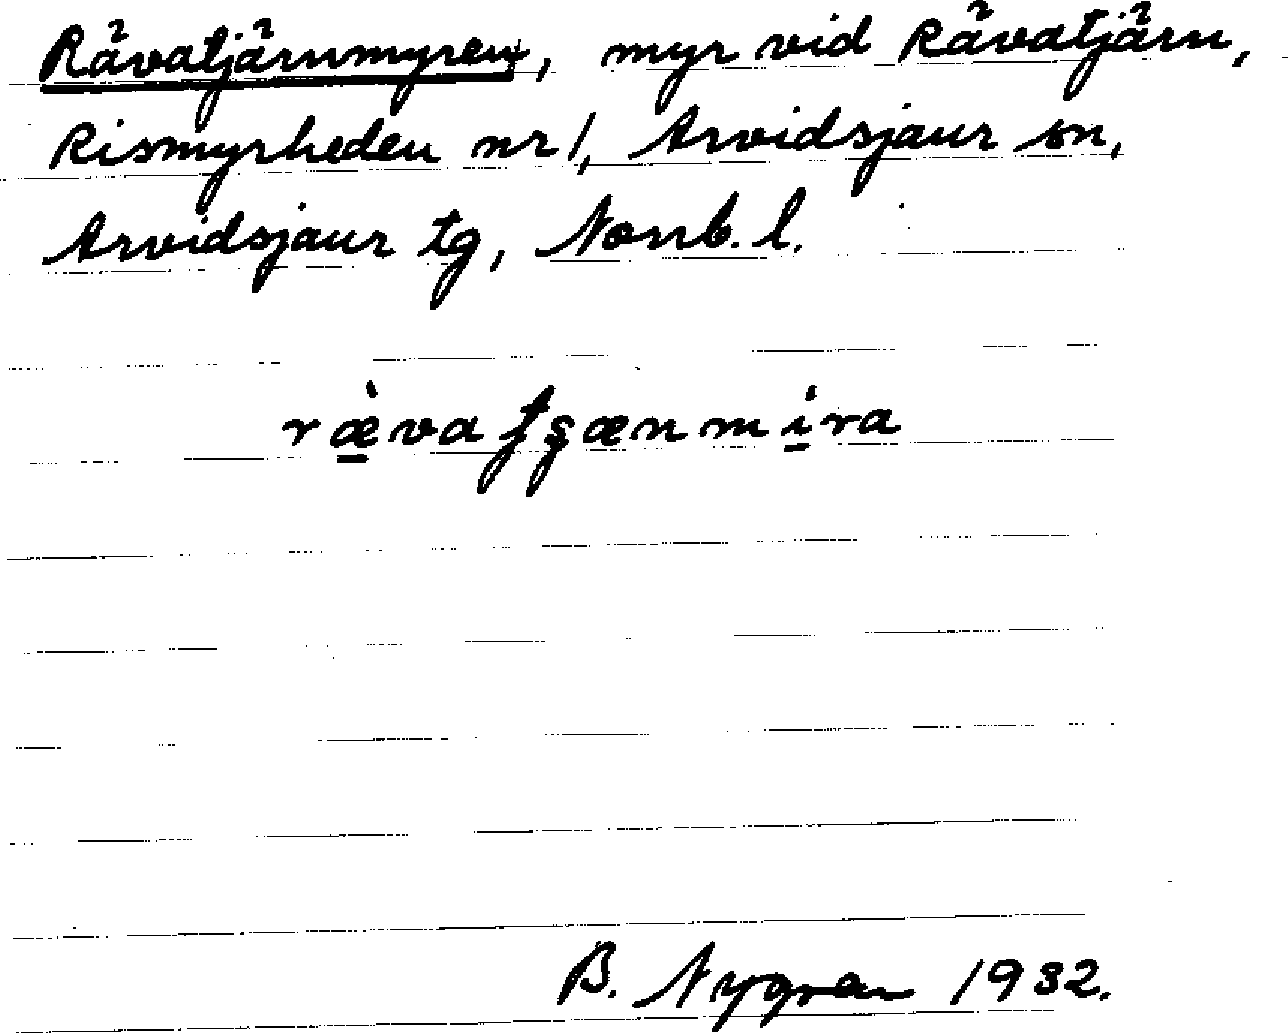 Rävatjärnmyren, myr vid Rävatjärn,
Rismyrheden nr 1, Arvidsjaur sn,
Arvidsjaur tg, Norrb. l.
ræ̲̀vatʂænmí̲ra
B. Nygren 1932.